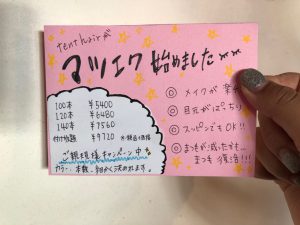 tent hair
マツエク 始めました
100本 ¥5400
120本 ¥6480
140本 ¥7560
付け放題 ¥9720
ご新規様キャンペーン中
カラー、本数、細かく決めれます。
◎ メイクが
◎ 目元がぱっちり
◎ スッピンでもOK!!
◎ まつ毛が減ったかも…
まつ毛 復活!!!